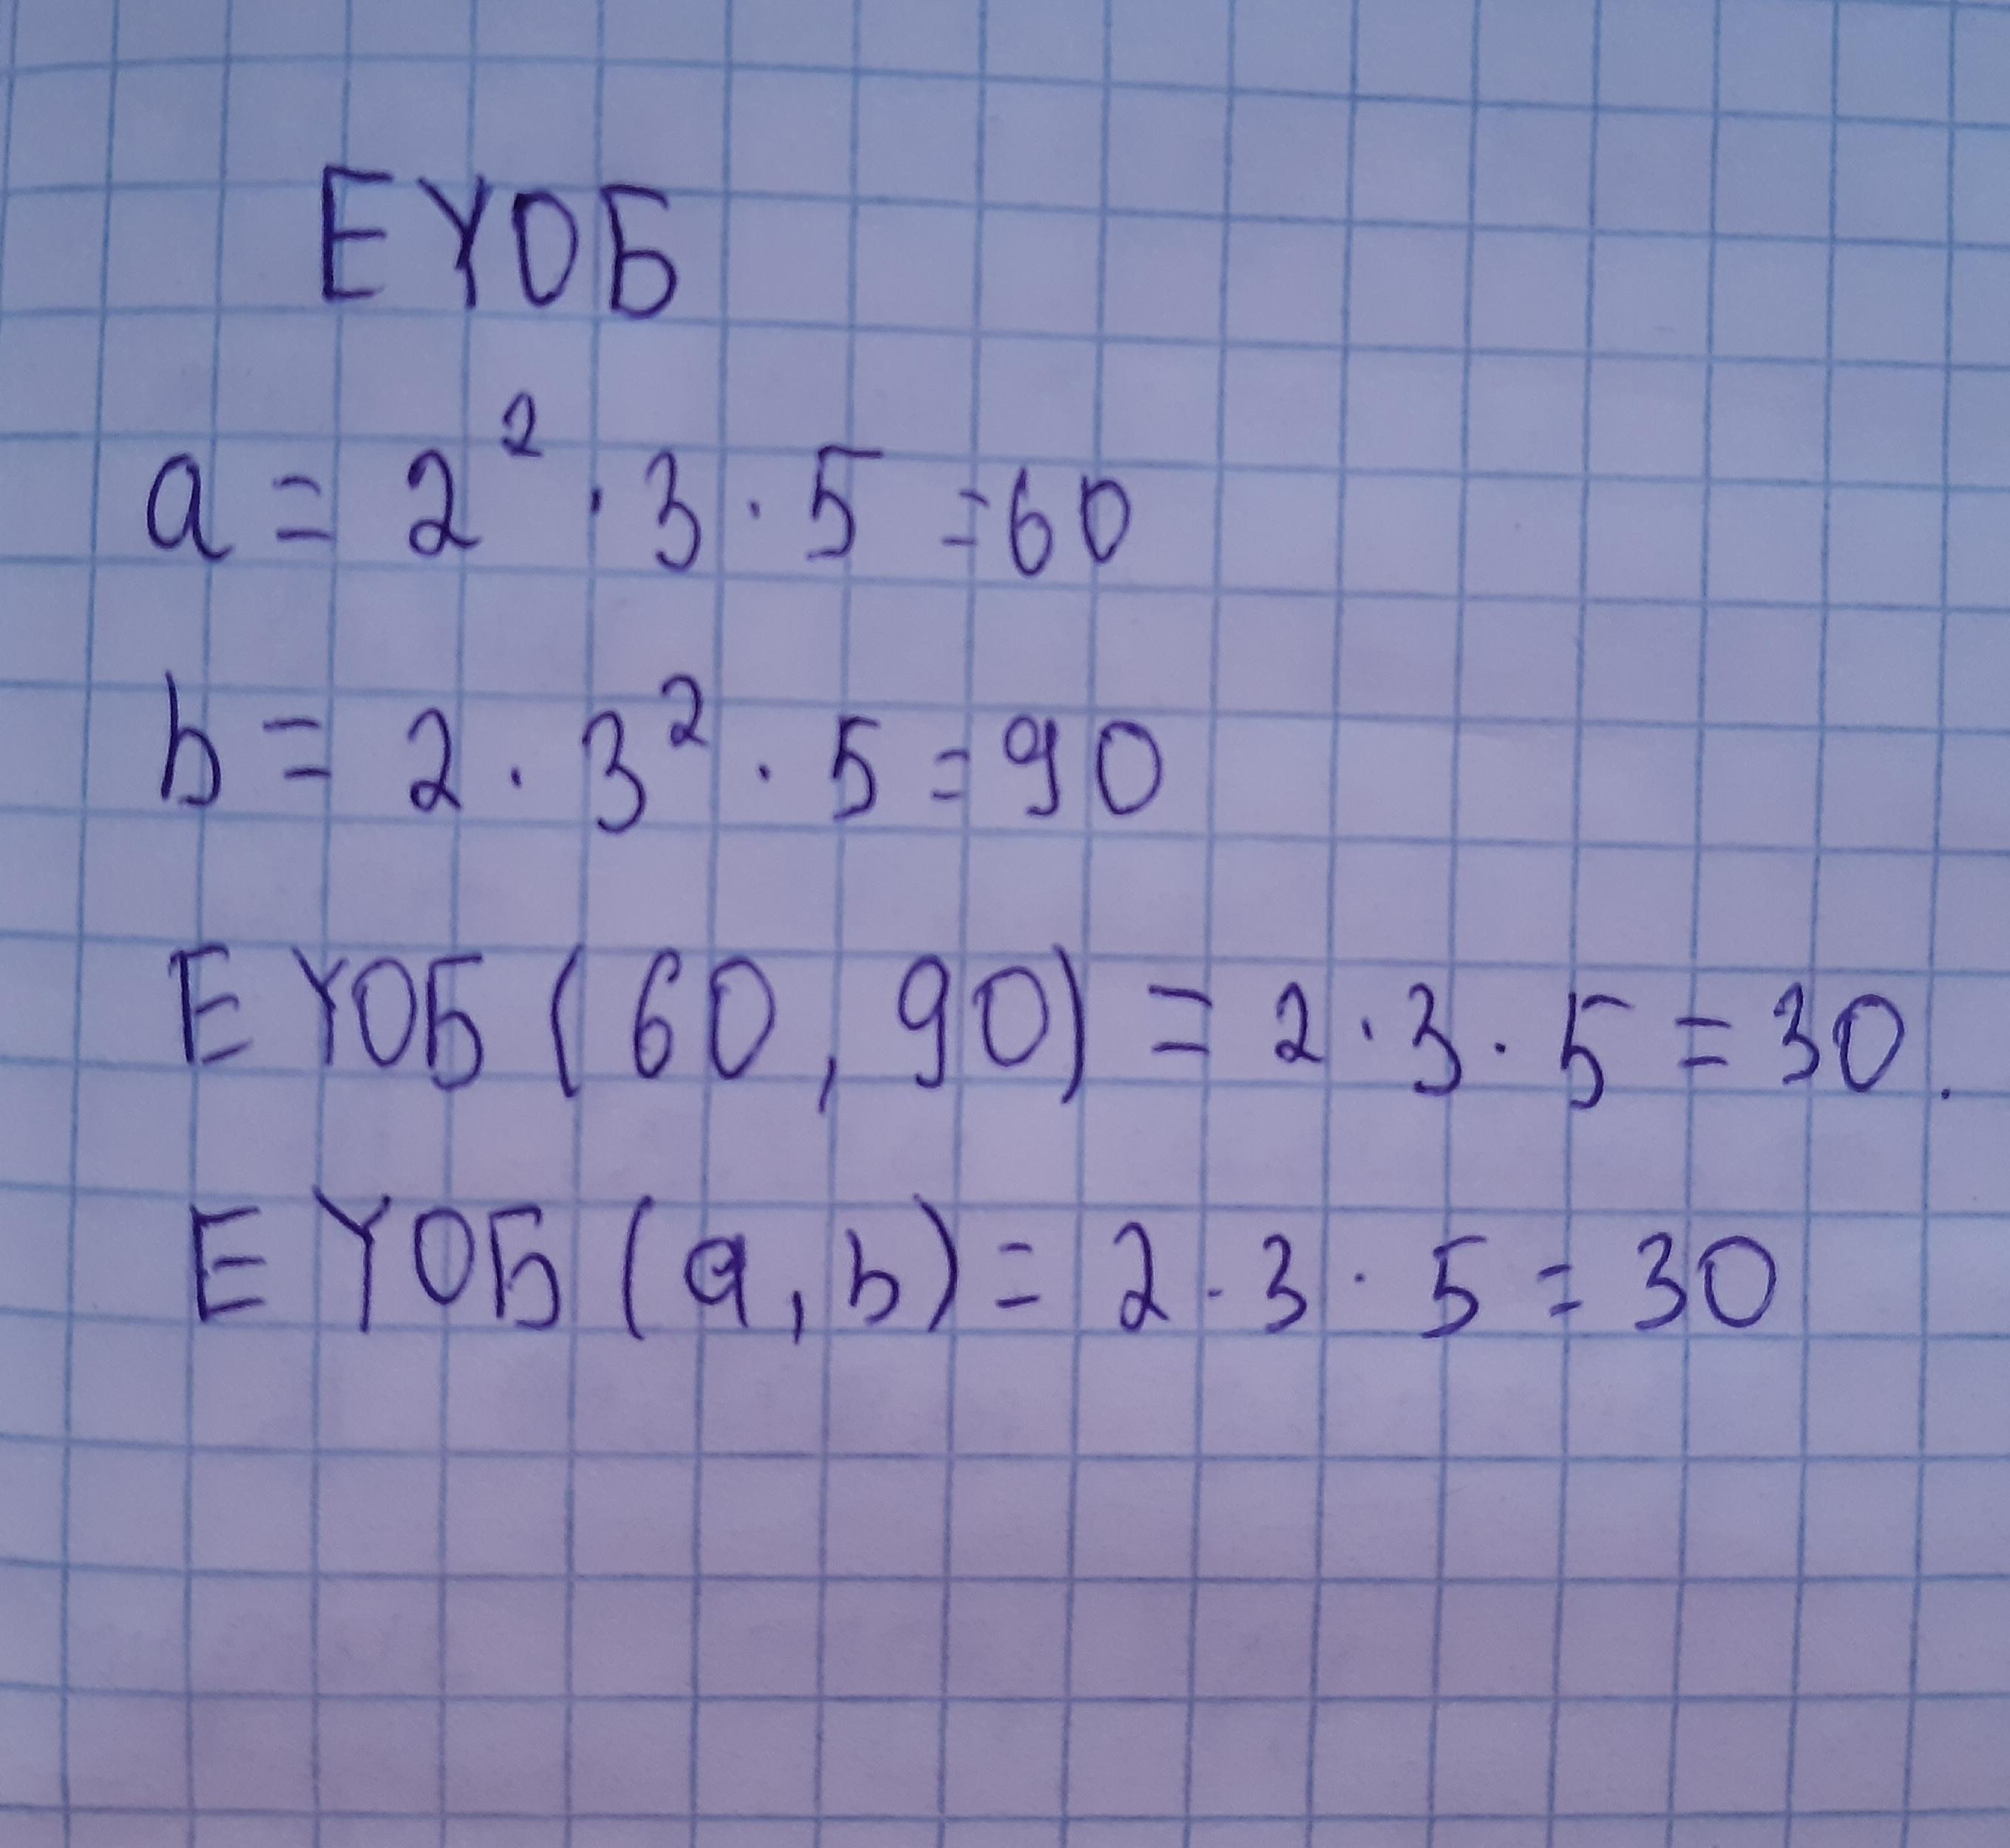 ЕҮОБ
a = 2² · 3 · 5 = 60
b = 2 · 3² · 5 = 90
ЕҮОБ (60, 90) = 2 · 3 · 5 = 30.
ЕҮОБ (a, b) = 2 · 3 · 5 = 30